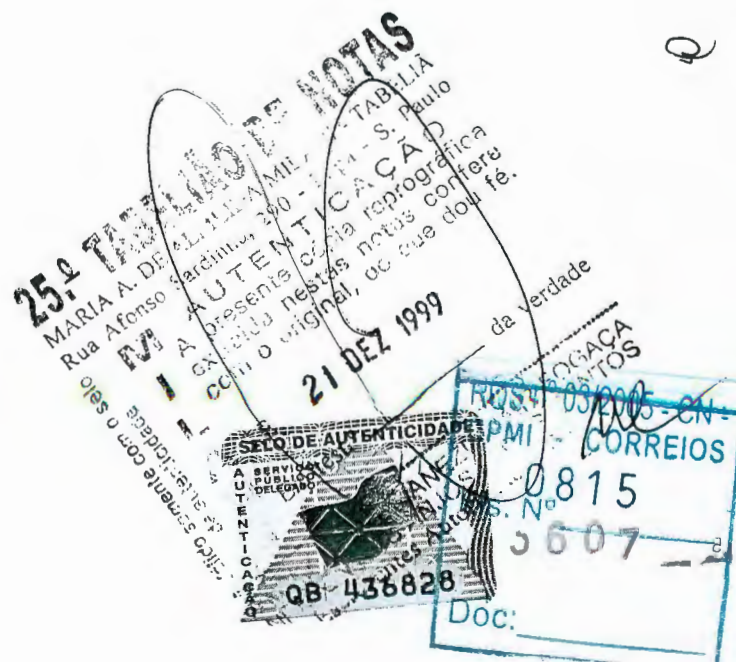 25.º TABELIÃO DE NOTAS
MARIA A. DE TABELIÃ
Rua Afonso Sardinha, 290 - S. Paulo
AUTENTICAÇÃO
A presente cópia reprográfica
extraída nestas notas confere
com o original, do que dou fé.
21 DEZ 1999
da verdade
válido somente com o selo
de autenticidade
SELO DE AUTENTICIDADE
SERVIÇO
PÚBLICO
DELEGADO
AUTENTICAÇÃO
QB 436828
RQS nº 03/2005 - CN -
CPMI - CORREIOS
Fls. Nº 0815
3607
Doc: